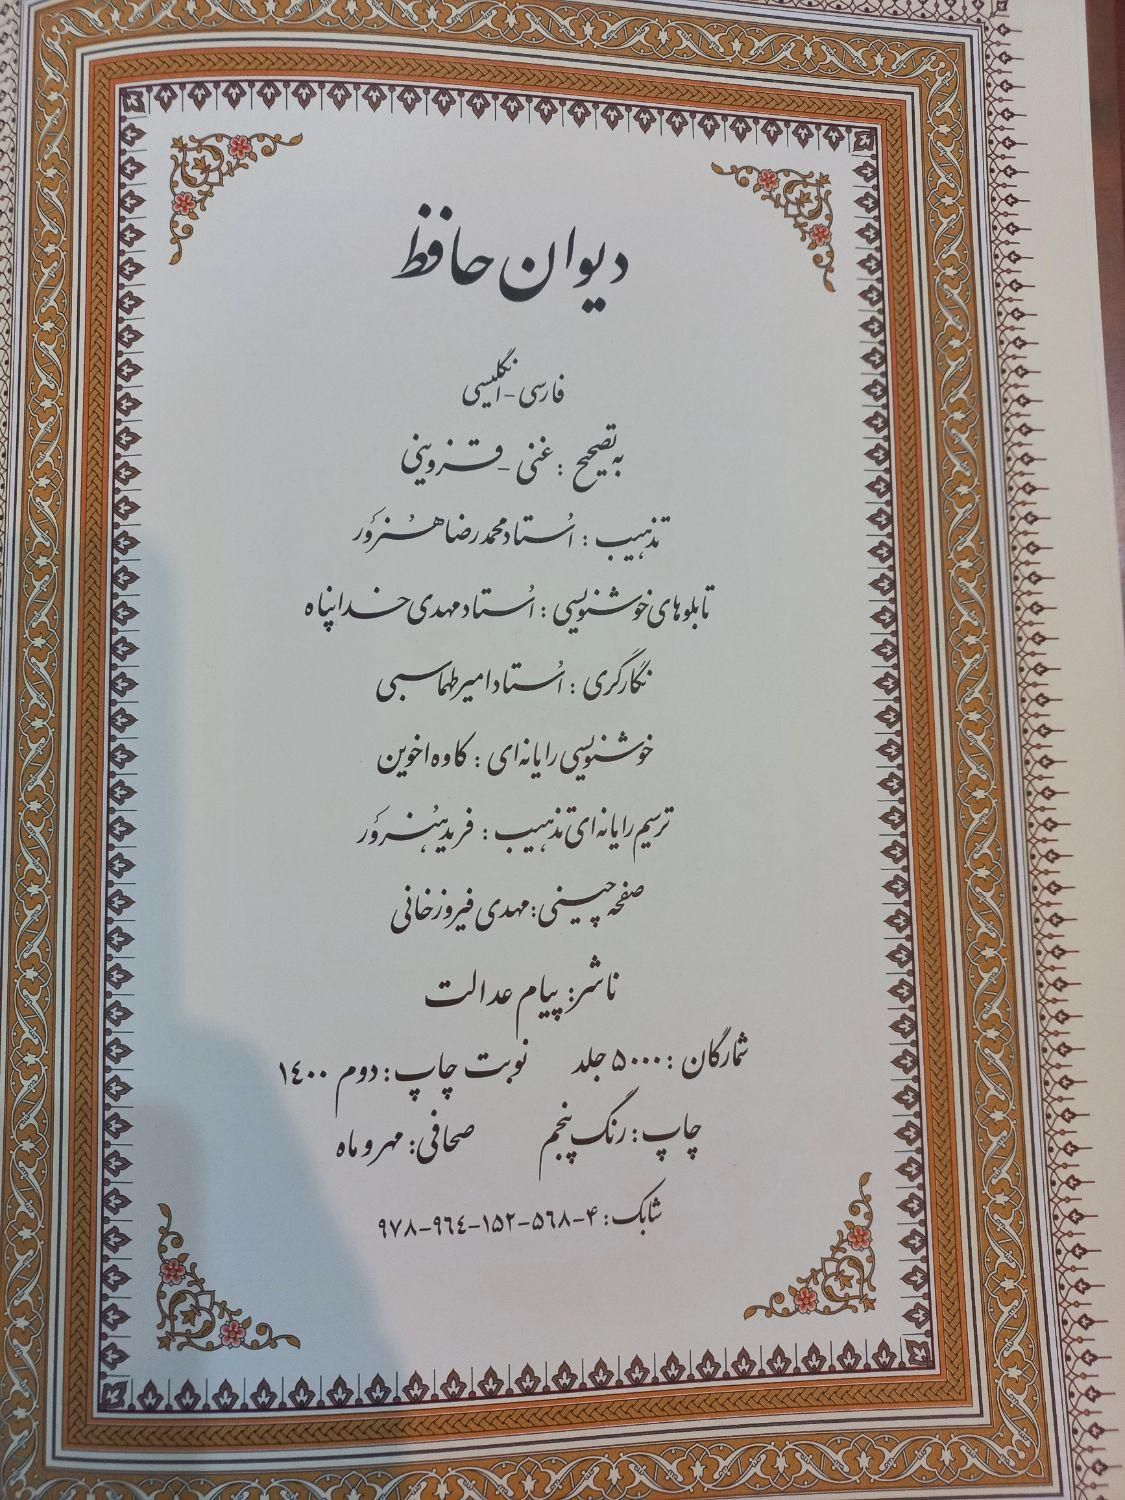 دیوان حافظ
فارسی - انگلیسی
به تصحیح : غنی - قزوینی
تذهیب : اُستاد محمدرضا هُنرَور
تابلوهای خوشنویسی : اُستاد مهدی خداپناه
نگارگری : اُستاد امیر طهماسبی
خوشنویسی رایانه‌ای : کاوه اخوین
ترسیم رایانه‌ای تذهیب : فرید هُنرَور
صفحه چینی: مهدی فیروزخانی
ناشر: پیام عدالت
شمارگان : ۵۰۰۰ جلد نوبت چاپ : دوم ۱۴۰۰
چاپ : رنگ پنجم صحافی: مهر و ماه
شابک : ۴-۵۶۸-۱۵۲-۹۶۴-۹۷۸